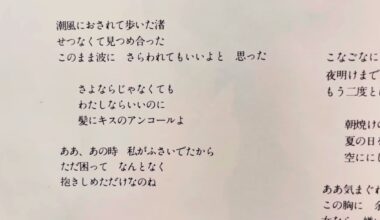 潮風におされて歩いた渚
せつなくて見つめ合った
このまま波に　さらわれてもいいよと　思った
さよならじゃなくても
わたしならいいのに
髪にキスのアンコールよ
ああ、あの時　私がふさいでたから
ただ困って　なんとなく
抱きしめただけなのね
こなごなに
夜明けまで
もう二度と
朝焼け
夏の日
空に
ああ気まぐれ
この胸に